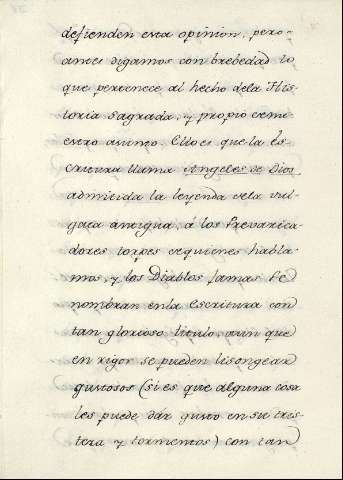 defienden esta opinion, pero
antes digamos con brebedad lo
que pertenece al hecho dela His-
toria Sagrada, y propio denu-
estro asunto. Ello es que la Es-
critura llama Angeles de Dios
admitida la leyenda dela vul-
gata antigua, á los Prevarica-
dores torpes dequienes habla-
mos, y los Diables Jamas se
nombran enla Escritura con
tan glorioso titulo, aun que
en rigor se pueden lisongear
gustosos (si es que alguna cosa
les puede dár gusto en su tris-
teza y tormentos) con tan